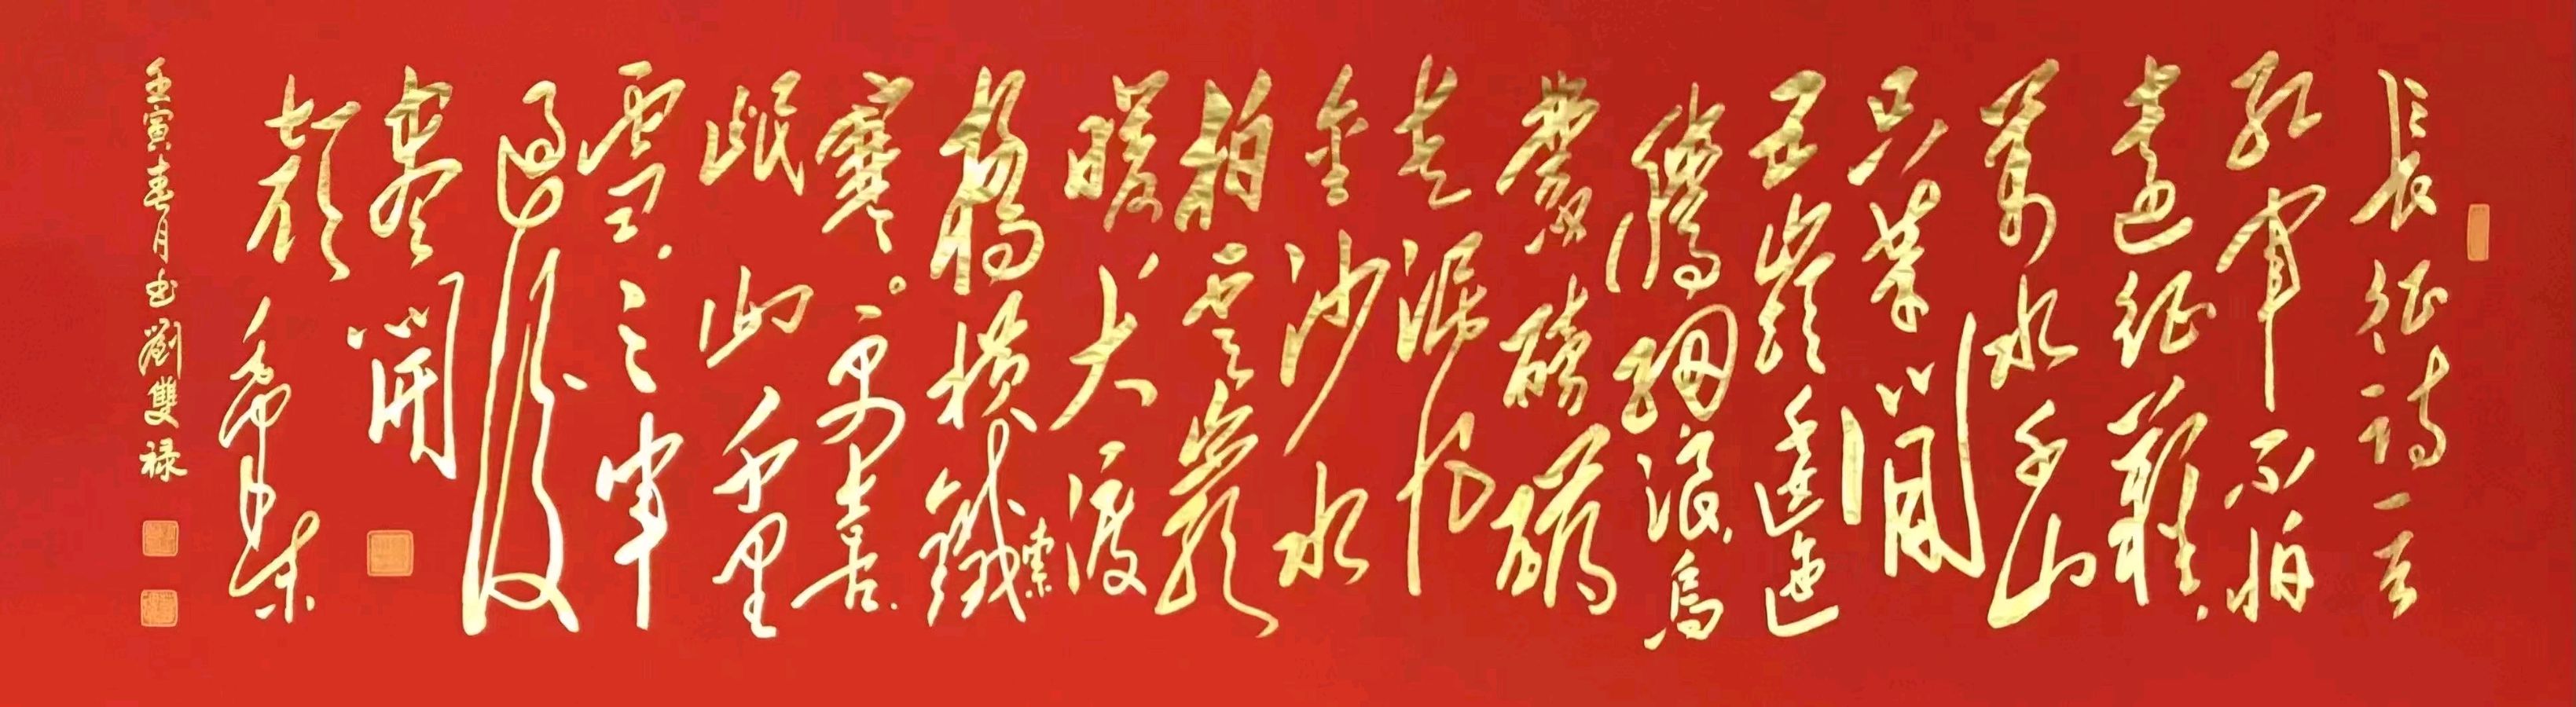 長征詩一首
紅軍不怕
遠征難.
萬水千山
只等閒
五嶺逶迤
騰細浪烏
蒙磅礴
走泥丸
金沙水
拍雲崖
暖大渡
橋橫鐵索
寒。更喜.
岷山千里
雪.三軍
過後
盡開
顏 毛澤東
壬寅春月書劉雙禄